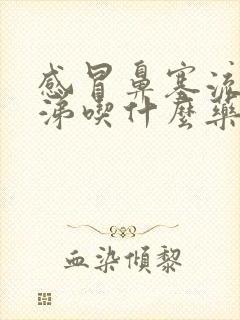 感冒鼻塞流
涕喫什麼藥
血染傾黎